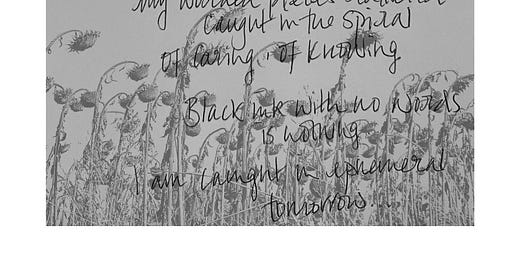 my
caught in the spiral
of caring, of knowing
Black ink with no words
is nothing
I am caught in ephemeral
tomorrows...